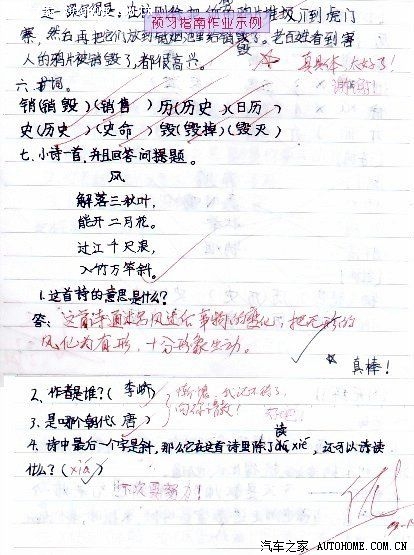 预习指南作业示例
到虎门
寨，然后再把它们放到销烟池里给销毁了。老百姓看到害
人的鸦片被销毁了，都很高兴。
真具体，太好了！
谢谢！
六、扩词。
销（销毁）（销售）历（历史）（日历）
史（历史）（史命）毁（毁掉）（毁灭）
七、小诗一首，并且回答问题。
风
解落三秋叶，
能开二月花。
过江千尺浪，
入竹万竿斜。
1.这首诗的意思是什么？
答：这首诗通过写风送给事物的变化，把无形的
风化为有形，十分形象生动。
真棒！
2、作者是谁？（李峤）
3、是哪个朝代（唐）
向你请教！
读
4、诗中最后一个字是斜，那么它在这首诗里除了读xié，还可以读
什么？（xiá）
下次要努力！
优
汽车之家 AUTOHOME.COM.CN